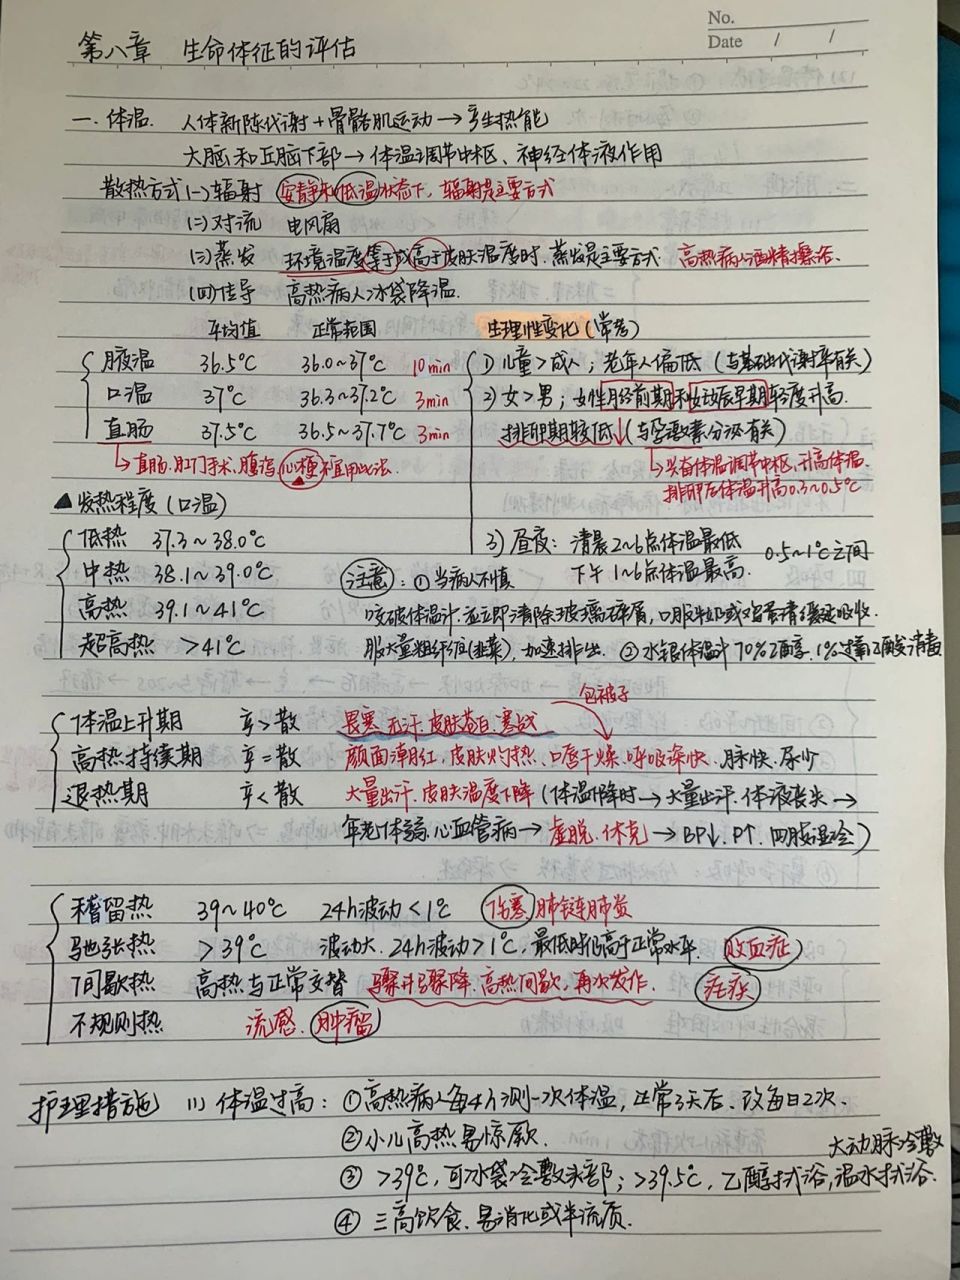 No.
Date / /
第八章 生命体征的评估
一.体温. 人体新陈代谢+骨骼肌运动→产生热能
大脑和丘脑下部→体温调节中枢、神经体液作用
散热方式 (一)辐射 安静和低温状态下,辐射是主要方式
(二)对流 电风扇
(三)蒸发 环境温度等于或高于皮肤温度时.蒸发是主要方式 高热病人酒精擦浴.
(四)传导 高热病人冰袋降温.
平均值 正常范围 生理性变化(常考)
腋温 36.5℃ 36.0~37℃ 10min
口温 37℃ 36.3~37.2℃ 3min
直肠 37.5℃ 36.5~37.7℃ 3min
↳直肠.肛门手术、腹泻.心梗不宜用此法
1) 儿童>成人;老年人偏低(与基础代谢率有关)
2) 女>男;女性月经前期和妊娠早期轻度升高.
排卵期较低↓(与孕激素分泌有关)
↳兴奋体温调节中枢,升高体温.
排卵后体温升高0.3~0.5℃
3) 昼夜: 清晨2~6点体温最低
下午1~6点体温最高. 0.5~1℃之间
▲发热程度(口温)
低热 37.3~38.0℃
中热 38.1~39.0℃
高热 39.1~41℃
超高热 >41℃
注意: ①当病人不慎
咬破体温计.应立即清除玻璃碎屑,口服牛奶或鸡蛋清缓延吸收.
服大量粗纤维(韭菜),加速排出. ②水银体温计 70%乙醇.1%过氧乙酸消毒
体温上升期 产>散 畏寒.无汗.皮肤苍白.寒战 包被子
高热持续期 产=散 颜面潮红,皮肤灼热.口唇干燥.呼吸深快.脉快、尿少
退热期 产<散 大量出汗.皮肤温度下降(体温下降时→大量出汗.体液丧失→
年老体弱.心血管病→虚脱.休克→BP↓.P↑.四肢湿冷)
稽留热 39~40℃ 24h波动<1℃ 伤寒 肺链肺炎
弛张热 >39℃ 波动大.24h波动>1℃,最低时仍高于正常水平. 败血症
间歇热 高热与正常交替 骤升骤降.高热间歇,再次发作. 疟疾
不规则热 流感.肿瘤
护理措施 (1)体温过高: ①高热病人每4h测一次体温,正常3天后.改每日2次.
②小儿高热易惊厥.
③ >39℃,可冰袋冷敷头部;>39.5℃,乙醇拭浴,温水拭浴. 大动脉冷敷
④ 三高饮食.易消化或半流质.